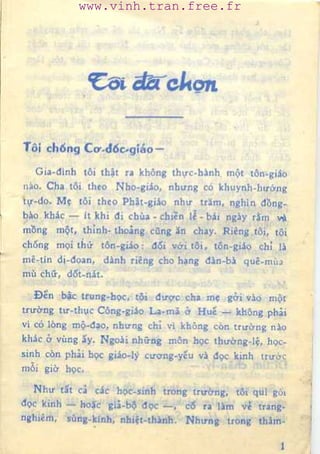 www.vinh.tran.free.fr
Tôi đã chọn
Tôi chống Cơ-đốc-giáo —
Gia-đình tôi thật ra không thực-hành một tôn-giáo
nào. Cha tôi theo Nho-giáo, nhưng có khuynh-hướng
tự-do. Mẹ tôi theo Phật-giáo như trăm, nghìn đồng-
bào khác — ít khi đi chùa - chiền lễ - bái ngày rằm và
mồng một, thỉnh-thoảng cũng ăn chay. Riêng tôi, tôi
chống mọi thứ tôn-giáo: đối với tôi, tôn-giáo chỉ là
mê-tín dị-đoan, dành riêng cho hạng đàn-bà quê-mùa
mù chữ, dốt-nát.
Đến bậc trung-học, tôi được cha mẹ gởi vào một
trường tư-thục Công-giáo La-mã ở Huế — không phải
vì có lòng mộ-đạo, nhưng chỉ vì không còn trường nào
khác ở vùng ấy. Ngoài những môn học thường-lệ, học-
sinh còn phải học giáo-lý cương-yếu và đọc kinh trước
mỗi giờ học.
Như tất cả các học-sinh trong trường, tôi quì gối
đọc kinh — hoặc giả-bộ đọc —, cố ra làm vẻ trang-
nghiêm, sùng-kính, nhiệt-thành. Nhưng trong thâm-
1